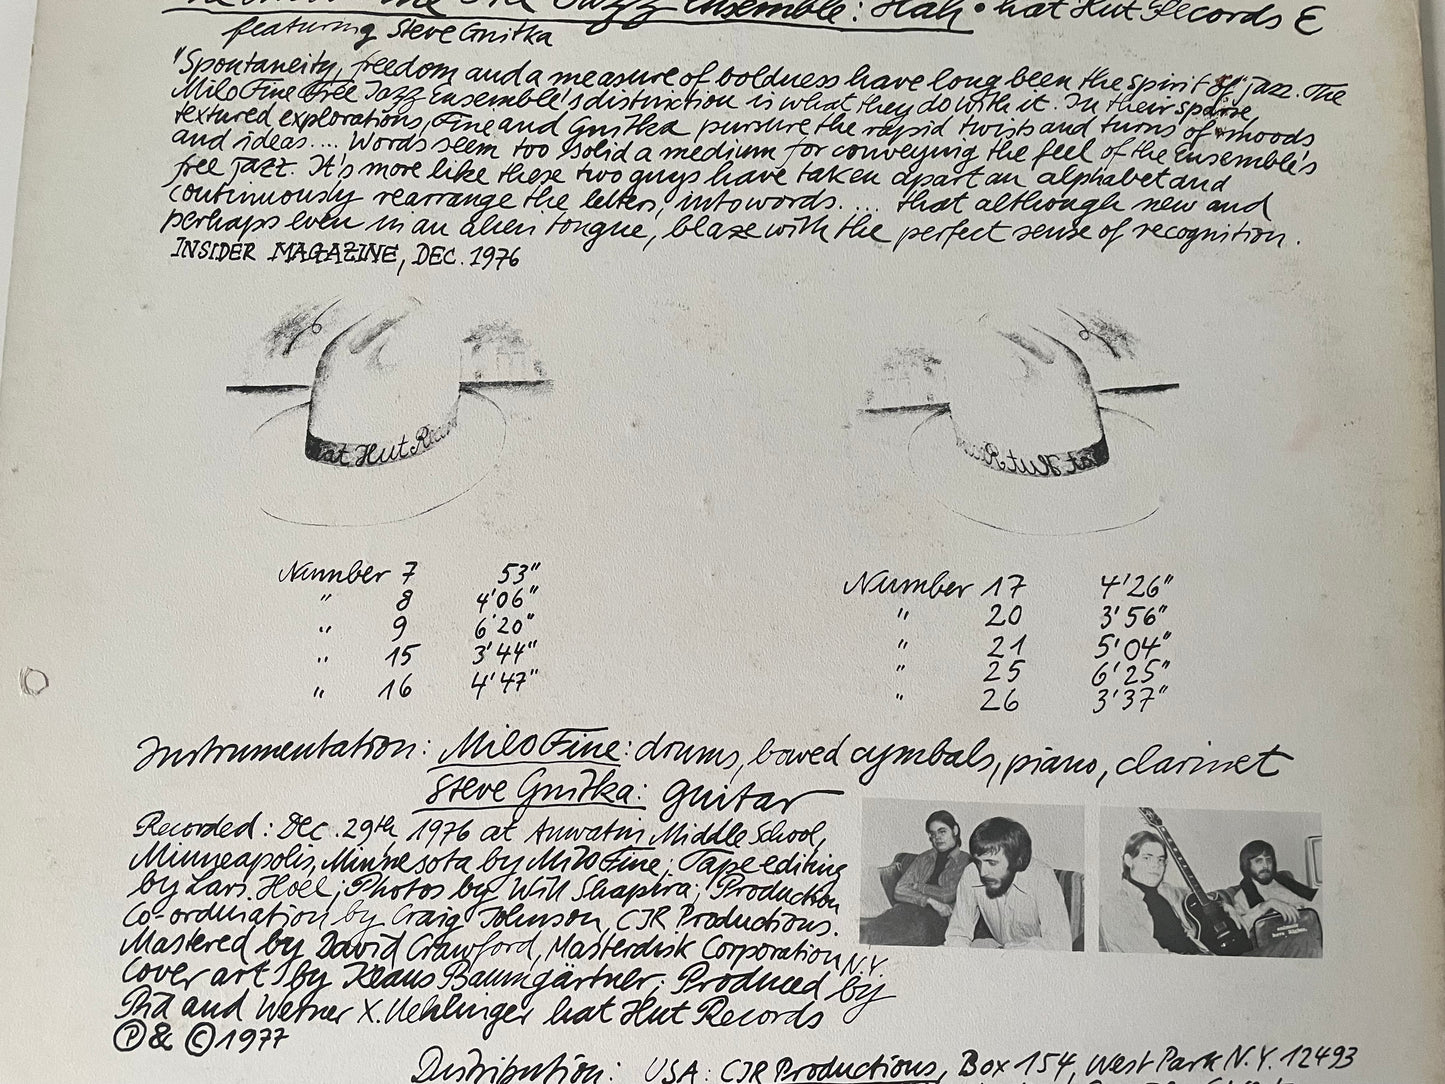 Free Jazz Ensemble: Hah • hat Hut Records E
featuring Steve Gnitka
"Spontaneity, freedom and a measure of boldness have long been the spirit of jazz. The
Milo Fine Free Jazz Ensemble's distinction is what they do with it. In their sparse,
textured explorations, Fine and Gnitka pursure the rapid twists and turns of moods
and ideas.... Words seem too solid a medium for conveying the feel of the Ensemble's
free jazz. It's more like these two guys have taken apart an alphabet and
continuously rearrange the letters, into words.... that although new and
perhaps even in an alien tongue, blaze with the perfect sense of recognition.
INSIDER MAGAZINE, DEC. 1976
at Hut Reco
at Hut Re
Number 7 53"
" 8 4'06"
" 9 6'20"
" 15 3'44"
" 16 4'47"
Number 17 4'26"
" 20 3'56"
" 21 5'04"
" 25 6'25"
" 26 3'37"
Instrumentation: Milo Fine: drums, bowed cymbals, piano, clarinet
Steve Gnitka: guitar
Recorded: Dec. 29th 1976 at Anwatin Middle School,
Minneapolis, Minnesota by Milo Fine; Tape editing
by Lars Hoel; Photos by Will Shapira; Production
Co-ordination by Craig Johnson, CJR Productions.
Mastered by David Crawford, Masterdisk Corporation N.Y.
Cover art by Klaus Baumgärtner; Produced by
Pia and Werner X. Uehlinger hat Hut Records
Ⓟ & © 1977
Distribution: USA: CJR Productions, Box 154, West Park N.Y. 12493